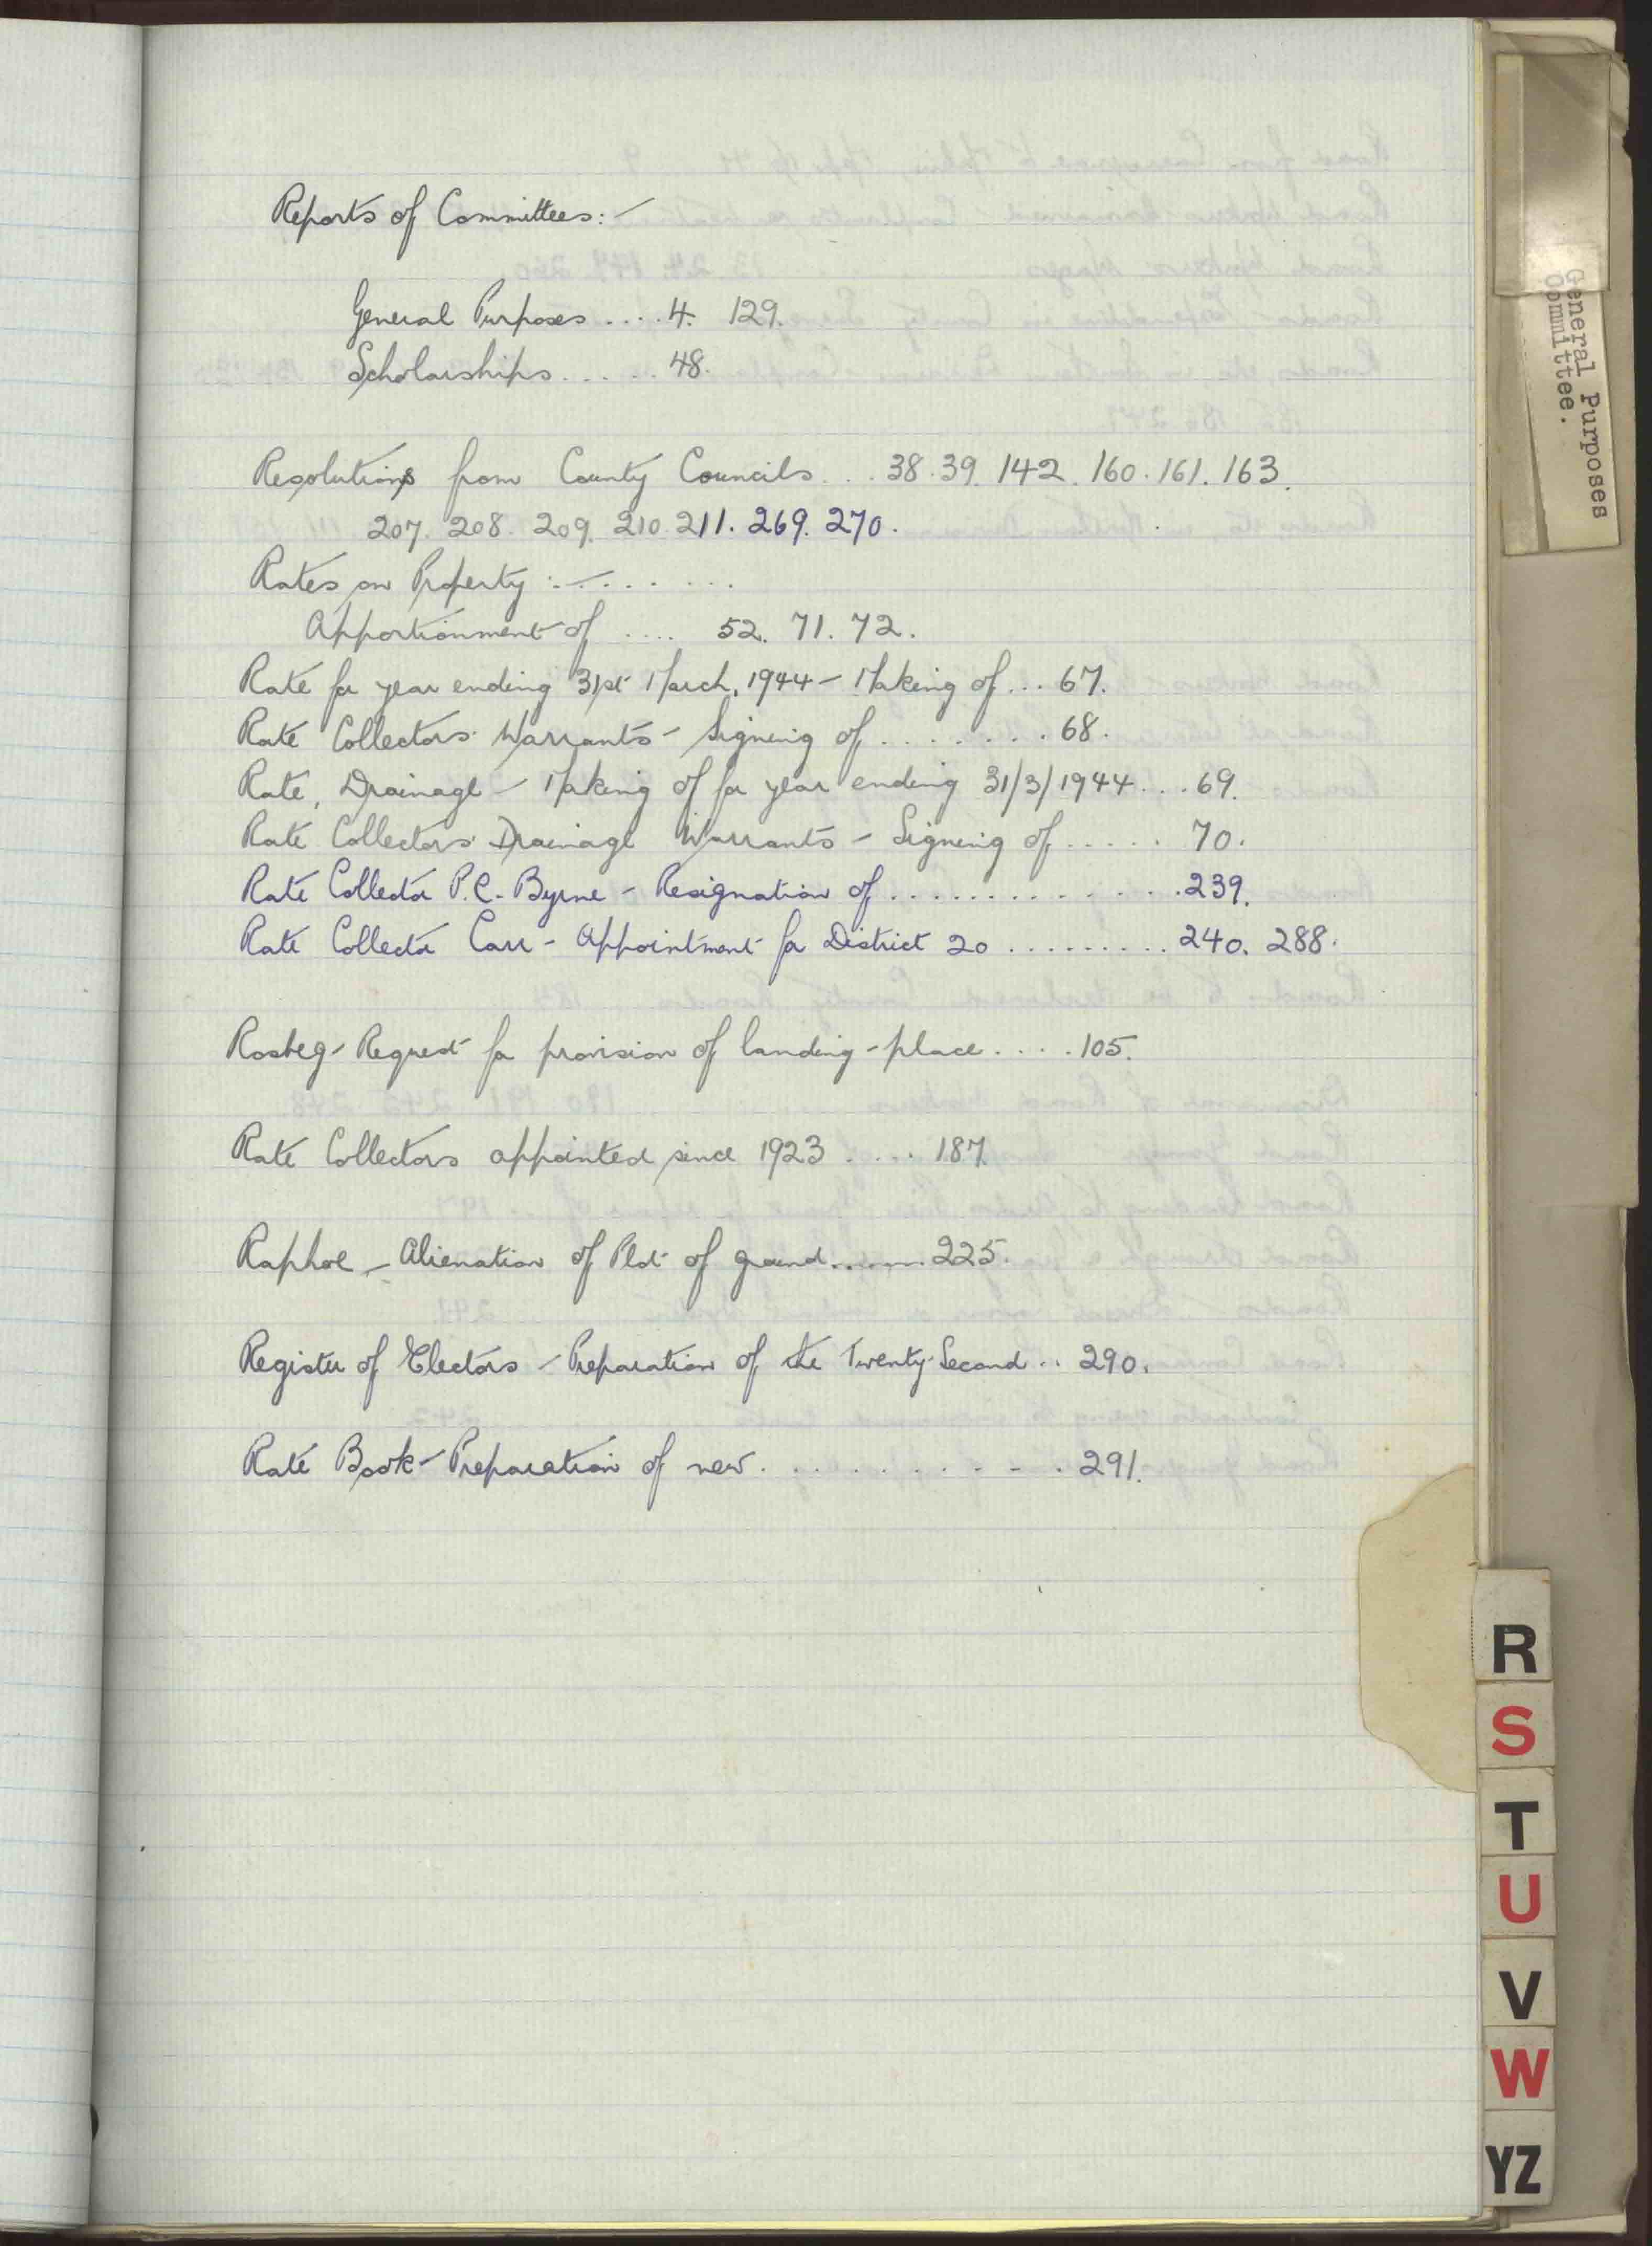 Reports of Committees:-
General Purposes .... 4. 129.
Scholarships ...... 48.
Resolutions from County Councils ... 38. 39. 142. 160. 161. 163.
207. 208. 209. 210. 211. 269. 270.
Rates on Property :- ......
Apportionment of .... 52. 71. 72.
Rate for year ending 31st March, 1944 - Making of ... 67.
Rate Collectors' Warrants - Signing of ........ 68.
Rate, Drainage - Making of for year ending 31/3/1944 ... 69.
Rate Collectors' Drainage Warrants - Signing of ..... 70.
Rate Collector P.C. Byrne - Resignation of .............. 239.
Rate Collector Carr - Appointment for District 20 ......... 240. 288.
Rosbeg - Request for provision of landing-place .... 105.
Rate Collectors appointed since 1923 .... 187.
Raphoe - Alienation of Plot of ground ....... 225.
Register of Electors - Preparation of the Twenty-Second .. 290.
Rate Book - Preparation of new ........... 291.
General Purposes
Committee.
R
S
T
U
V
W
YZ